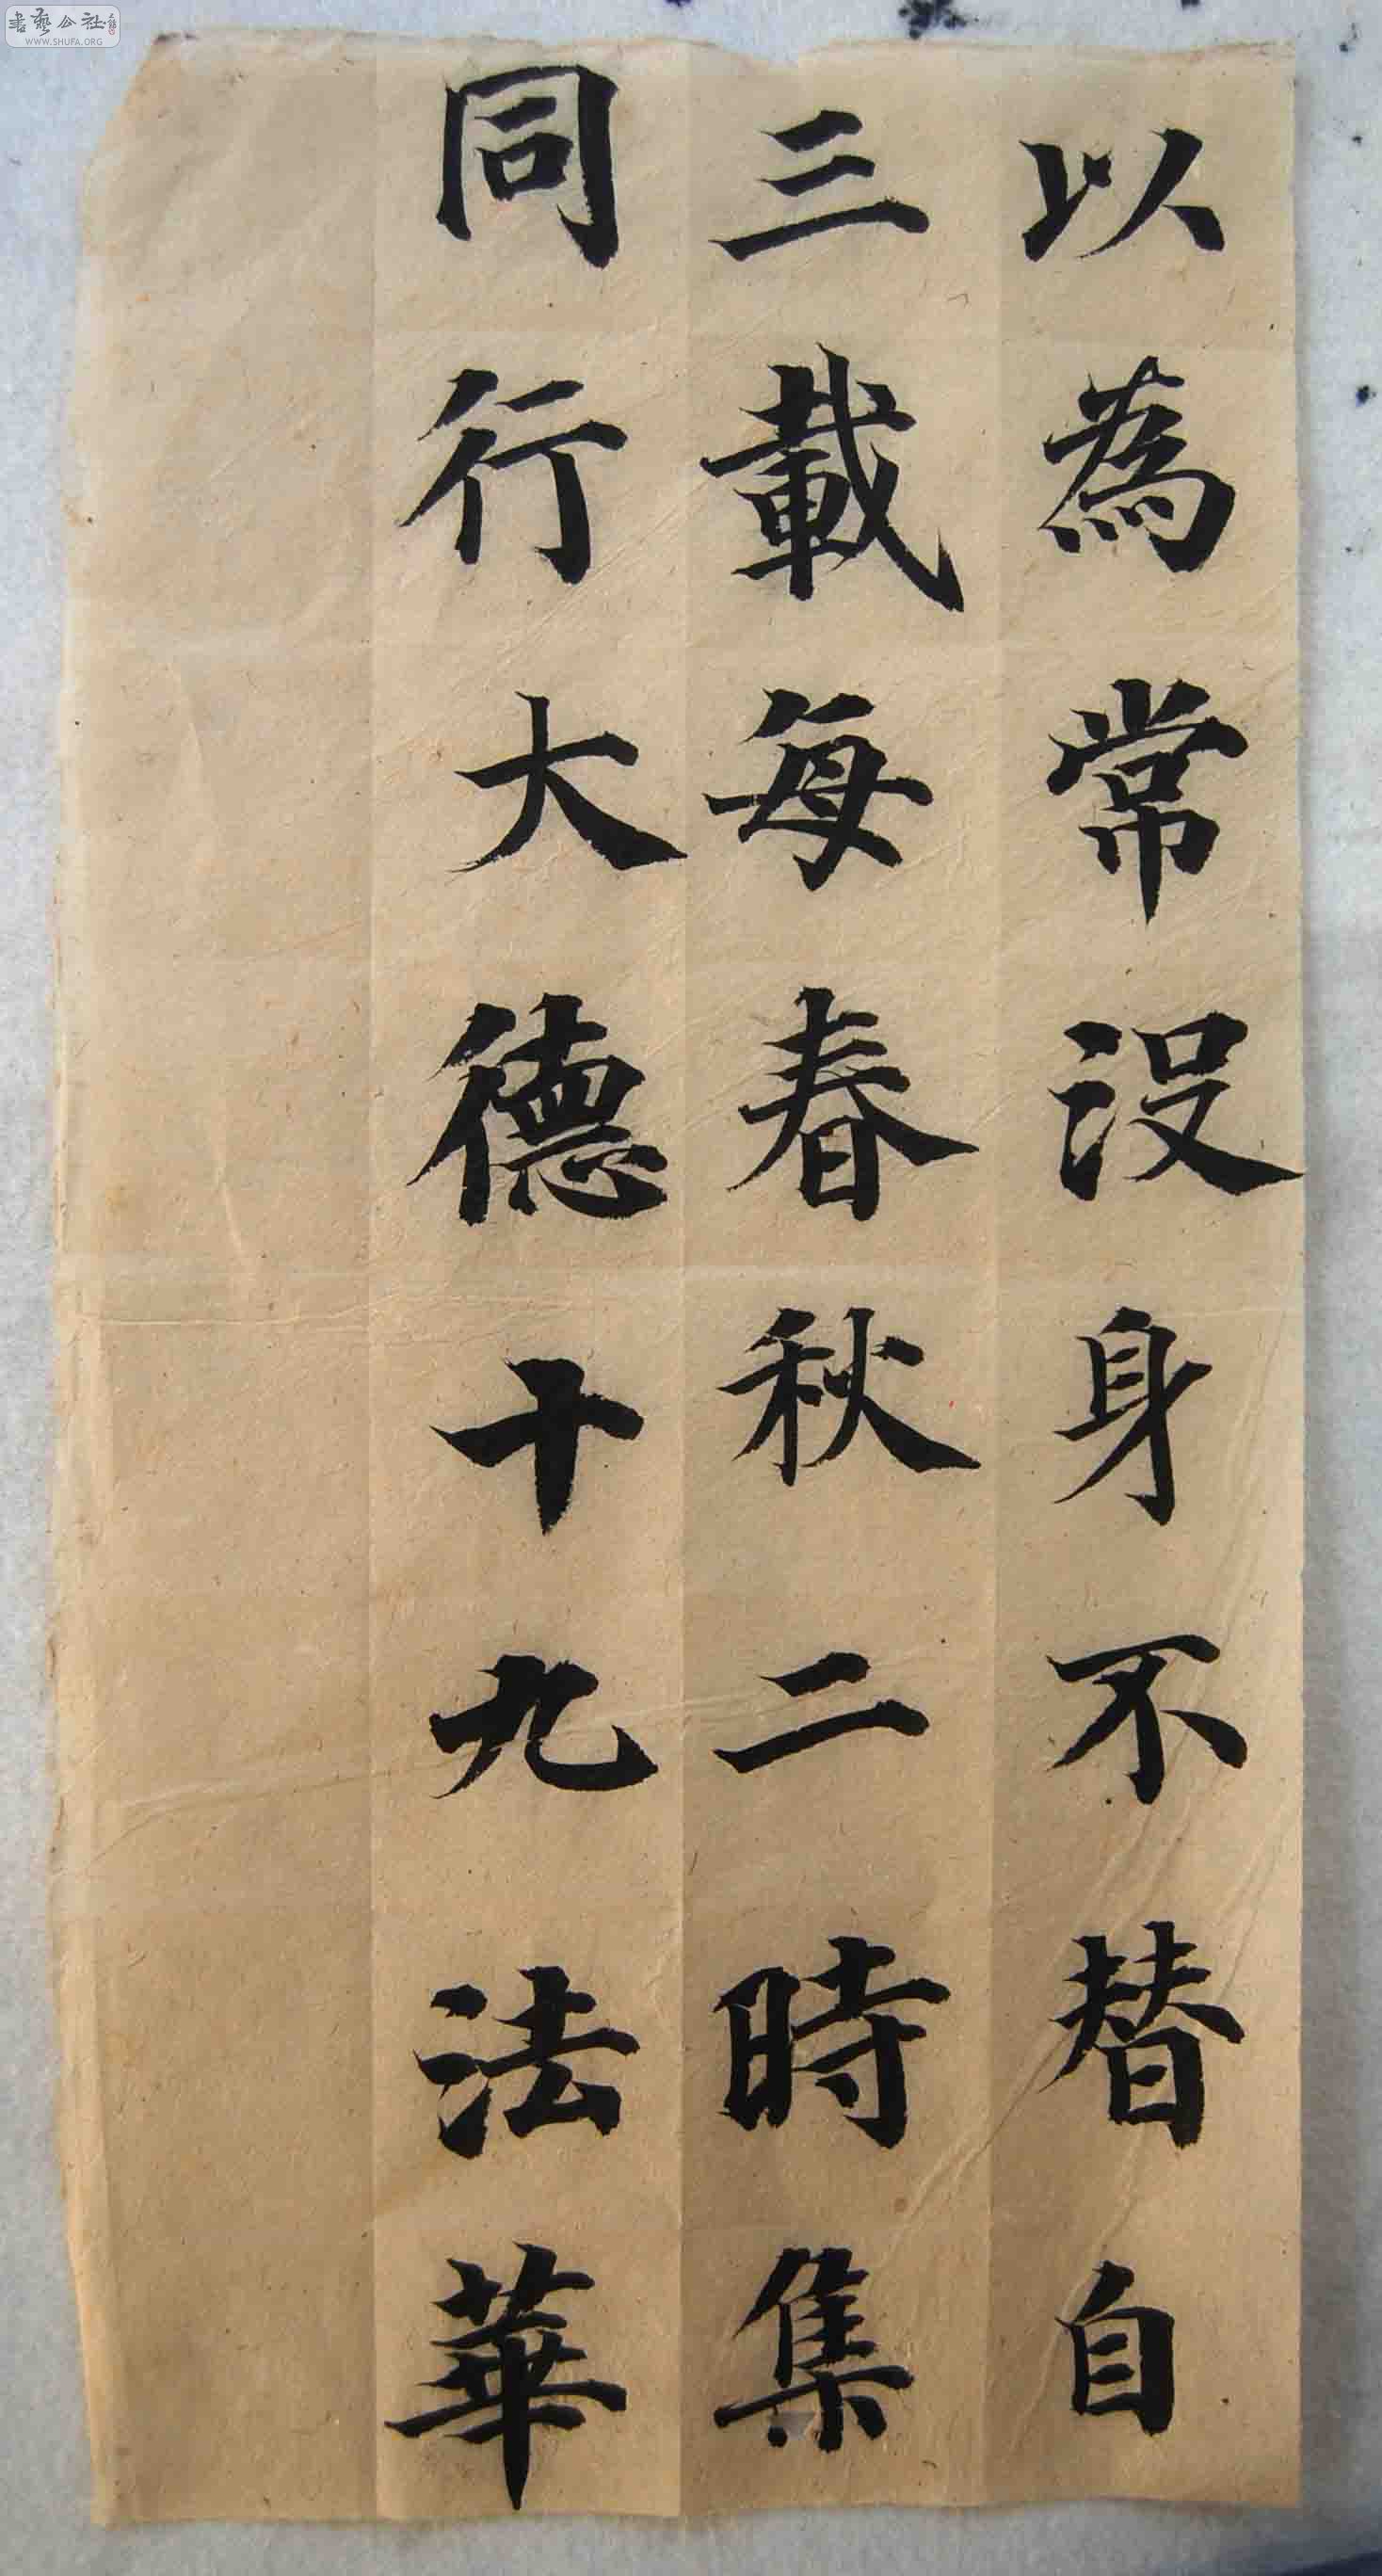 以為常沒身不替自
三載每春秋二時集
同行大德卌九法華
書藝公社
WWW.SHUFA.ORG